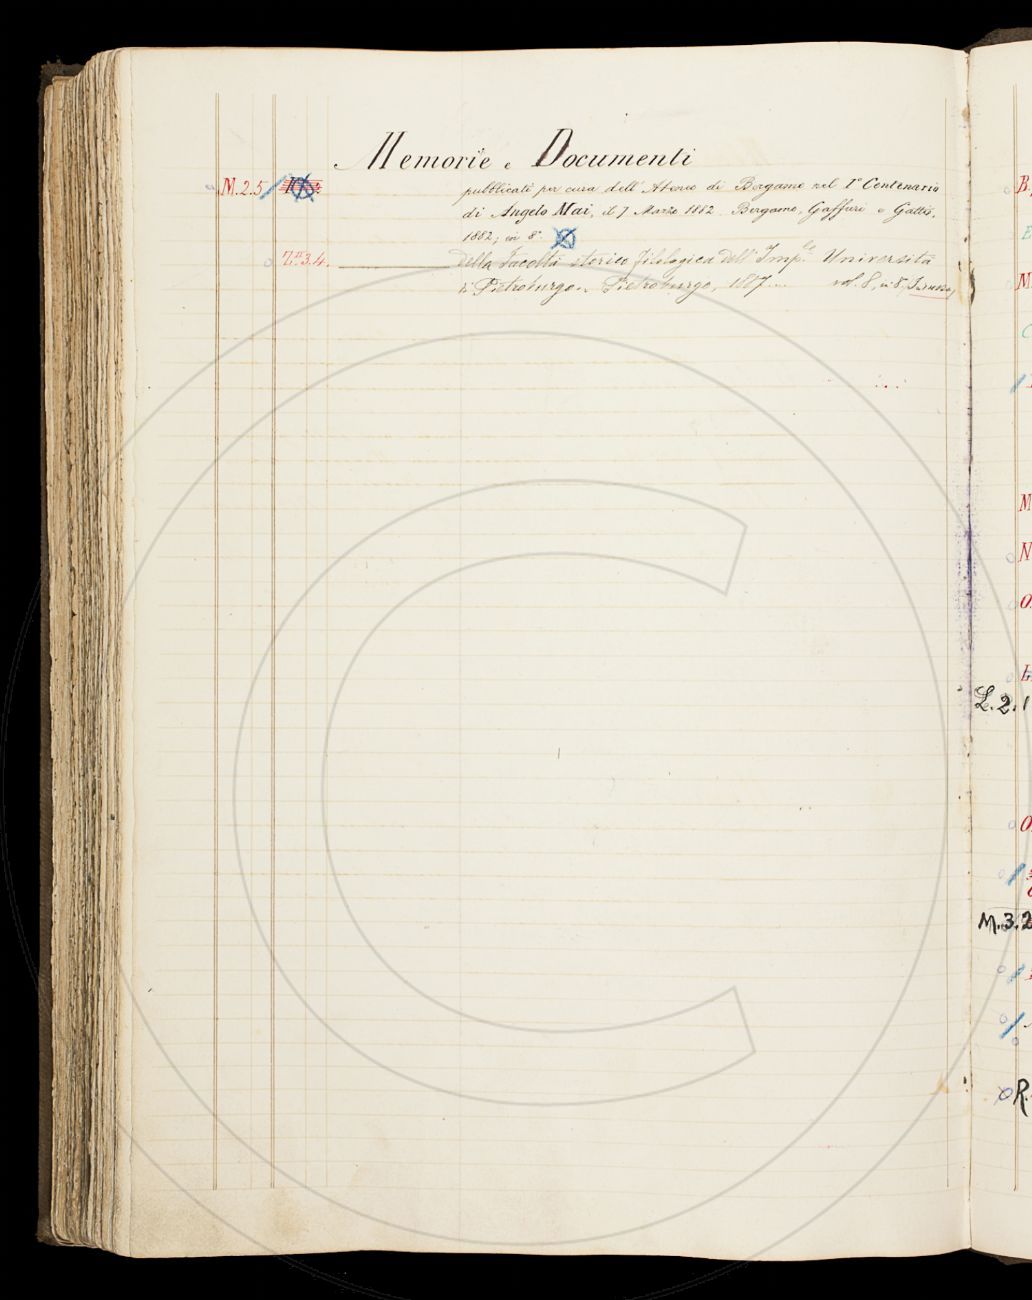 Memorie e Documenti
M.2.5 pubblicati per cura dell'Ateneo di Bergamo nel I° Centenario
di Angelo Mai, il 7 Marzo 1882. Bergamo, Gaffuri e Gatti,
1882; in 8°
3.4. della Facoltà storico filologica dell'Imp.le Università
di Pietroburgo. Pietroburgo, 1887.... vol. 8, in 8°
L.2.1
M.3.2
R.